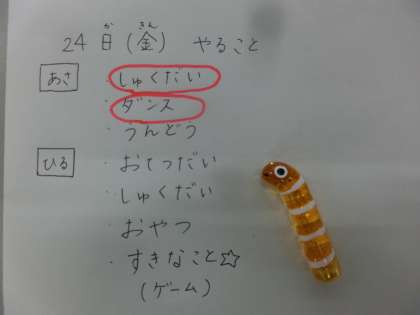 24日(金) やること
あさ ・しゅくだい
・ダンス
・うんどう
ひる ・おてつだい
・しゅくだい
・おやつ
・すきなこと☆
(ゲーム)